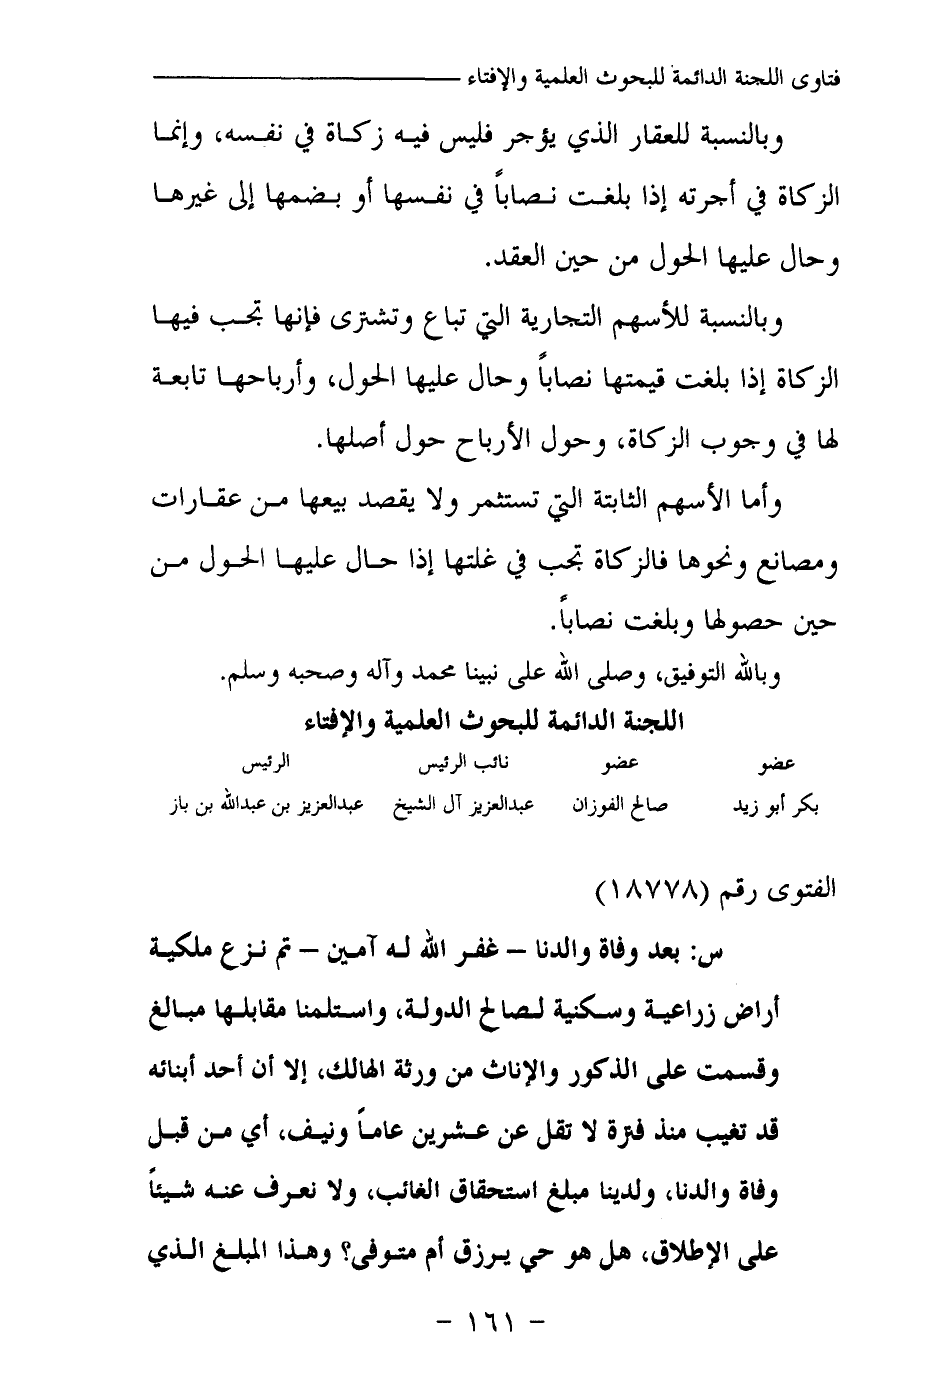 فتاوى اللجنة الدائمة للبحوث العلمية والإفتاء
وبالنسبة للعقار الذي يؤجر فليس فيه زكاة في نفسه، وإنما
الزكاة في أجرته إذا بلغت نصاباً في نفسها أو بضمها إلى غيرها
وحال عليها الحول من حين العقد.
وبالنسبة للأسهم التجارية التي تباع وتشترى فإنها تجب فيها
الزكاة إذا بلغت قيمتها نصاباً وحال عليها الحول، وأرباحها تابعة
لها في وجوب الزكاة، وحول الأرباح حول أصلها.
وأما الأسهم الثابتة التي تستثمر ولا يقصد بيعها من عقارات
ومصانع ونحوها فالزكاة تجب في غلتها إذا حال عليها الحول من
حين حصولها وبلغت نصاباً.
وبالله التوفيق، وصلى الله على نبينا محمد وآله وصحبه وسلم.
اللجنة الدائمة للبحوث العلمية والإفتاء
عضو عضو نائب الرئيس الرئيس
بكر أبو زيد صالح الفوزان عبدالعزيز آل الشيخ عبدالعزيز بن عبدالله بن باز
الفتوى رقم (١٨٧٧٨)
س: بعد وفاة والدنا – غفر الله له آمين – تم نزع ملكية
أراض زراعية وسكنية لصالح الدولة، واستلمنا مقابلها مبالغ
وقسمت على الذكور والإناث من ورثة الهالك، إلا أن أحد أبنائه
قد تغيب منذ فترة لا تقل عن عشرين عاماً ونيف، أي من قبل
وفاة والدنا، ولدينا مبلغ استحقاق الغائب، ولا نعرف عنه شيئاً
على الإطلاق، هل هو حي يرزق أم متوفى؟ وهذا المبلغ الذي
– ١٦١ –